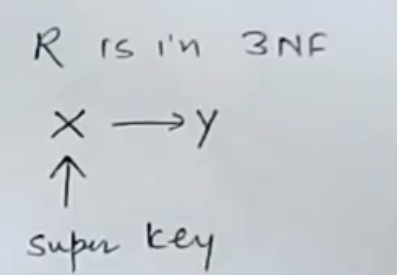 R is in 3NF
X → y
↑
super key